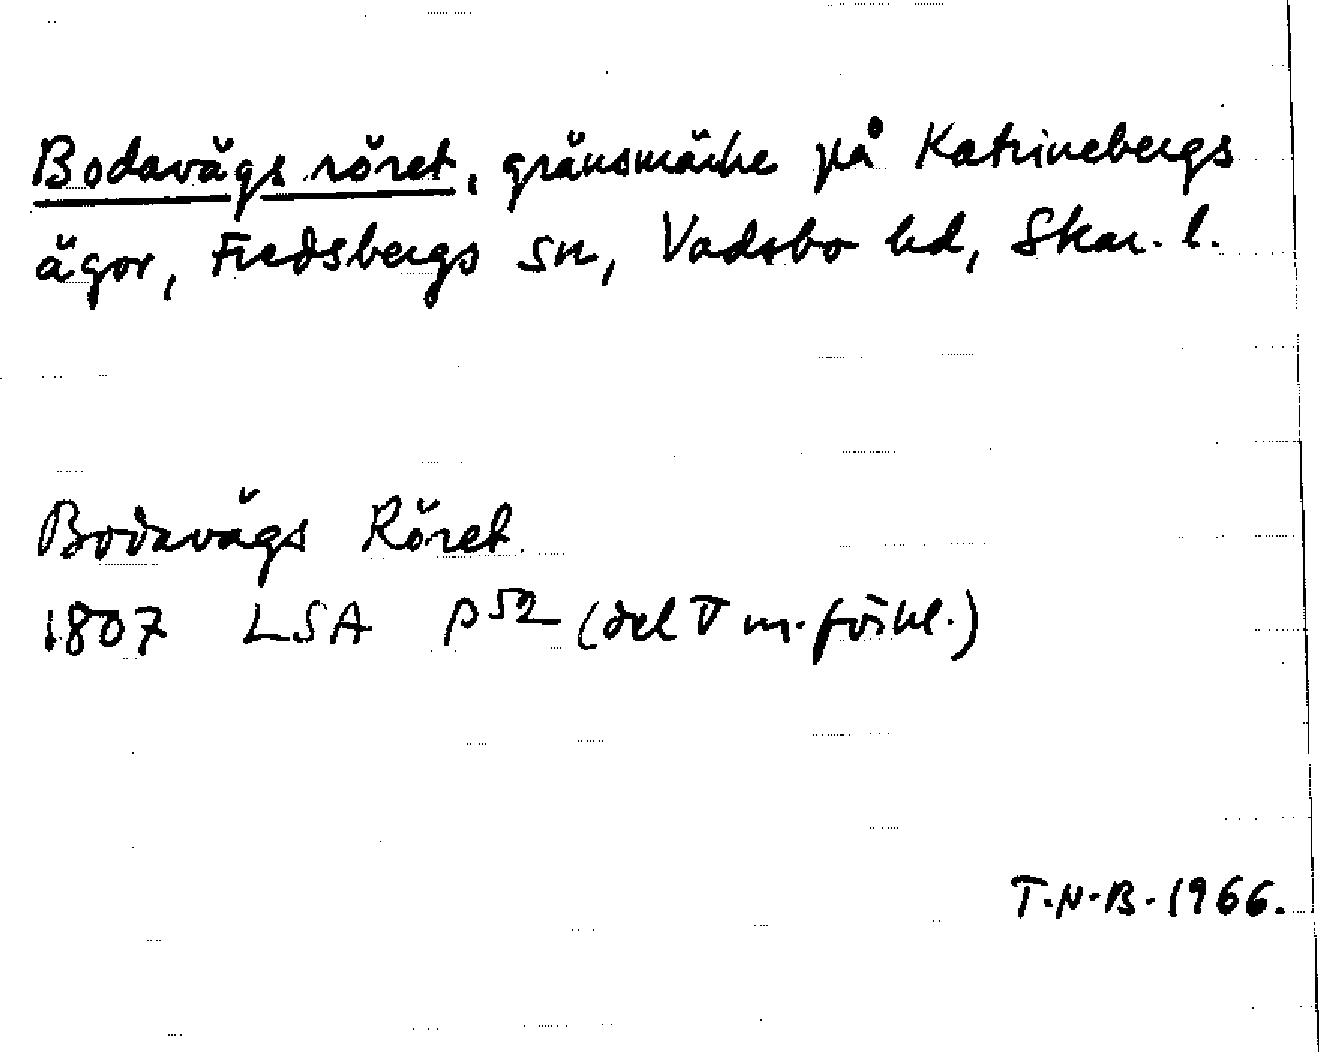 Bodavägs röret, gränsmärke på Katrinebergs
ägor, Fredsbergs sn, Vadsbo hd, Skar. l.
Bodavägs Röret
1807 LSA P52 (del V m. förkl.)
T.N.B. 1966.